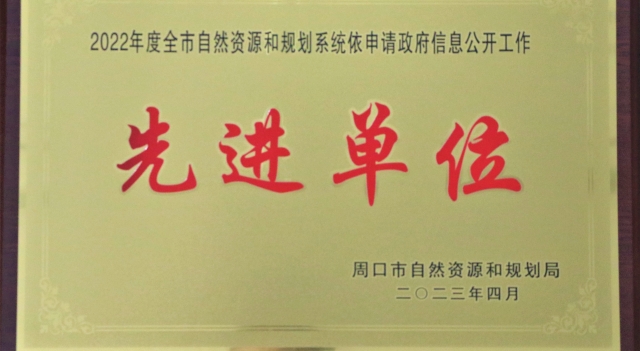 2022年度全市自然资源和规划系统依申请政府信息公开工作
先进单位
周口市自然资源和规划局
二〇二三年四月